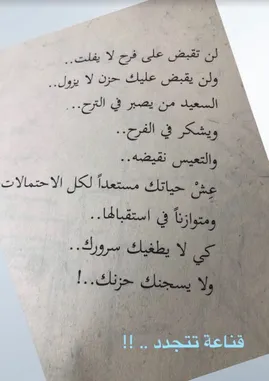 لن تقبض على فرح لا يفلت..
ولن يقبض عليك حزن لا يزول..
السعيد من يصبر في الترح..
ويشكر في الفرح..
والتعيس نقيضه..
عِشْ حياتك مستعداً لكل الاحتمالات
ومتوازناً في استقبالها..
كي لا يطغيك سرورك..
ولا يسجنك حزنك..!
قناعة تتجدد .. !!